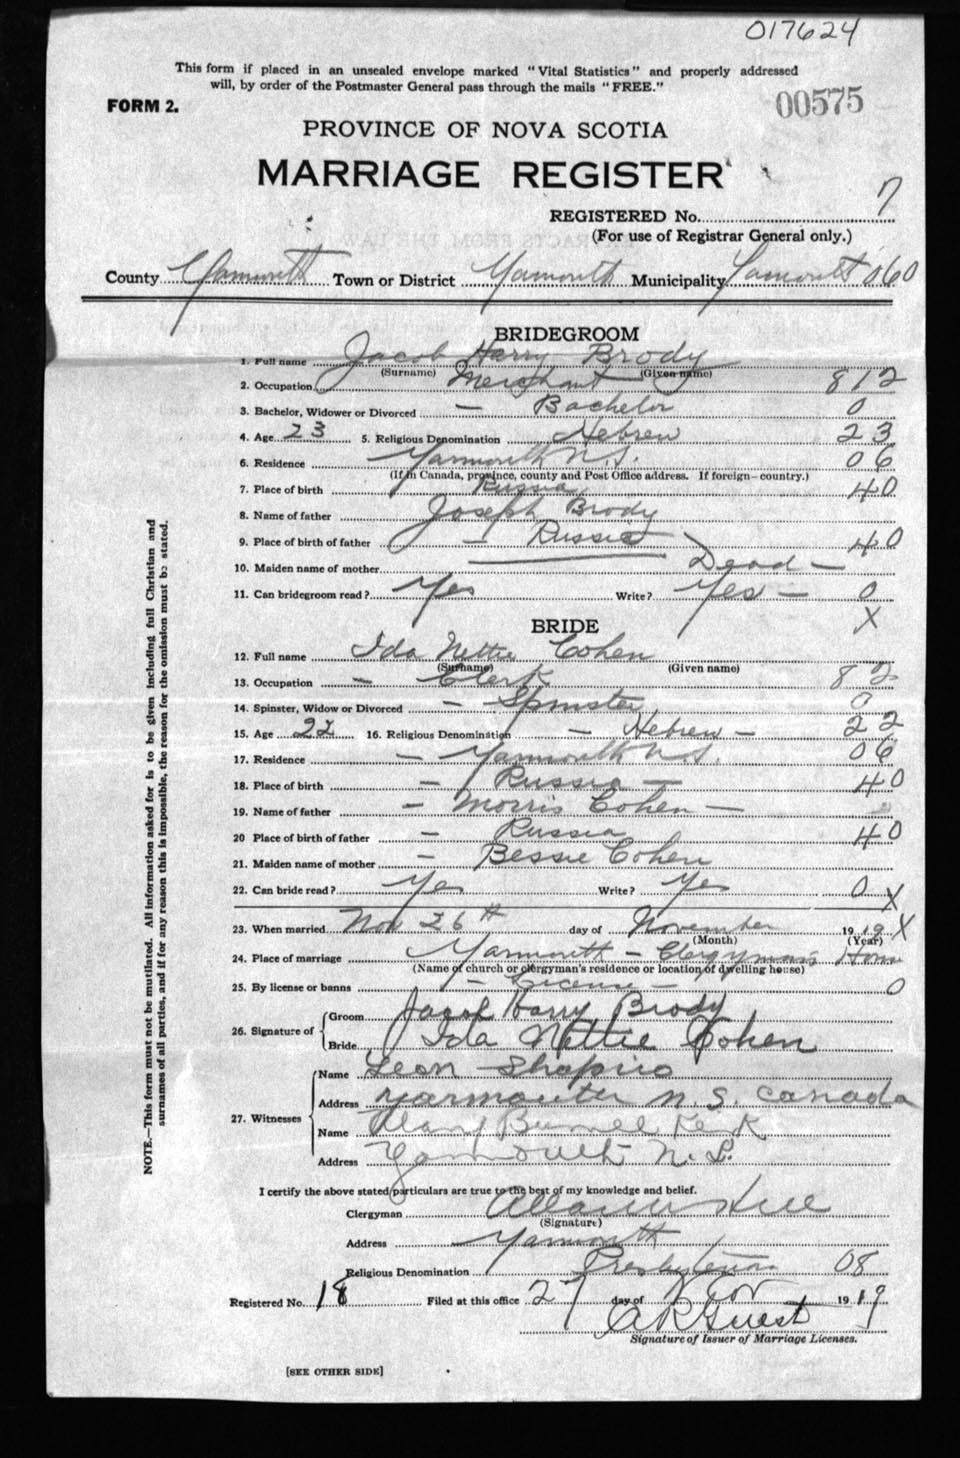 017624
This form if placed in an unsealed envelope marked "Vital Statistics" and properly addressed
will, by order of the Postmaster General pass through the mails "FREE."
FORM 2.
00575
PROVINCE OF NOVA SCOTIA
MARRIAGE REGISTER
REGISTERED No. 7
(For use of Registrar General only.)
County Yarmouth Town or District Yarmouth Municipality Yarmouth 060
BRIDEGROOM
1. Full name Jacob Harry Brody
(Surname) (Given name)
2. Occupation Merchant 812
3. Bachelor, Widower or Divorced — Bachelor 0
4. Age 23 5. Religious Denomination Hebrew 23
6. Residence Yarmouth N.S. 06
(If in Canada, province, county and Post Office address. If foreign—country.)
7. Place of birth Russia 40
8. Name of father Joseph Brody
9. Place of birth of father — Russia 40
10. Maiden name of mother Dead —
11. Can bridegroom read? Yes Write? Yes — 0
X
BRIDE
12. Full name Ida Nettie Cohen
(Surname) (Given name)
13. Occupation — Clerk 82
14. Spinster, Widow or Divorced — Spinster 0
15. Age 22 16. Religious Denomination — Hebrew — 22
17. Residence — Yarmouth N.S. 06
18. Place of birth — Russia — 40
19. Name of father — Morris Cohen —
20 Place of birth of father — Russia 40
21. Maiden name of mother — Bessie Cohen
22. Can bride read? Yes Write? Yes 0 X
23. When married Nov 26th day of November 1919 X
(Month) (Year)
24. Place of marriage Yarmouth — Clergymans Home
(Name of church or clergyman's residence or location of dwelling house)
25. By license or banns — License — 0
26. Signature of
Groom Jacob Harry Brody
Bride Ida Nettie Cohen
27. Witnesses
Name Leon Shapiro
Address Yarmouth N.S. Canada
Name Burnell
Address Yarmouth N.S.
I certify the above stated particulars are true to the best of my knowledge and belief.
Clergyman
(Signature)
Address Yarmouth
Religious Denomination Presbyterian 08
Registered No. 18 Filed at this office 27 day of Nov 1919
Signature of Issuer of Marriage Licenses.
NOTE.—This form must not be mutilated. All information asked for is to be given including full Christian and
surnames of all parties, and if for any reason this is impossible, the reason for the omission must be stated.
[SEE OTHER SIDE]